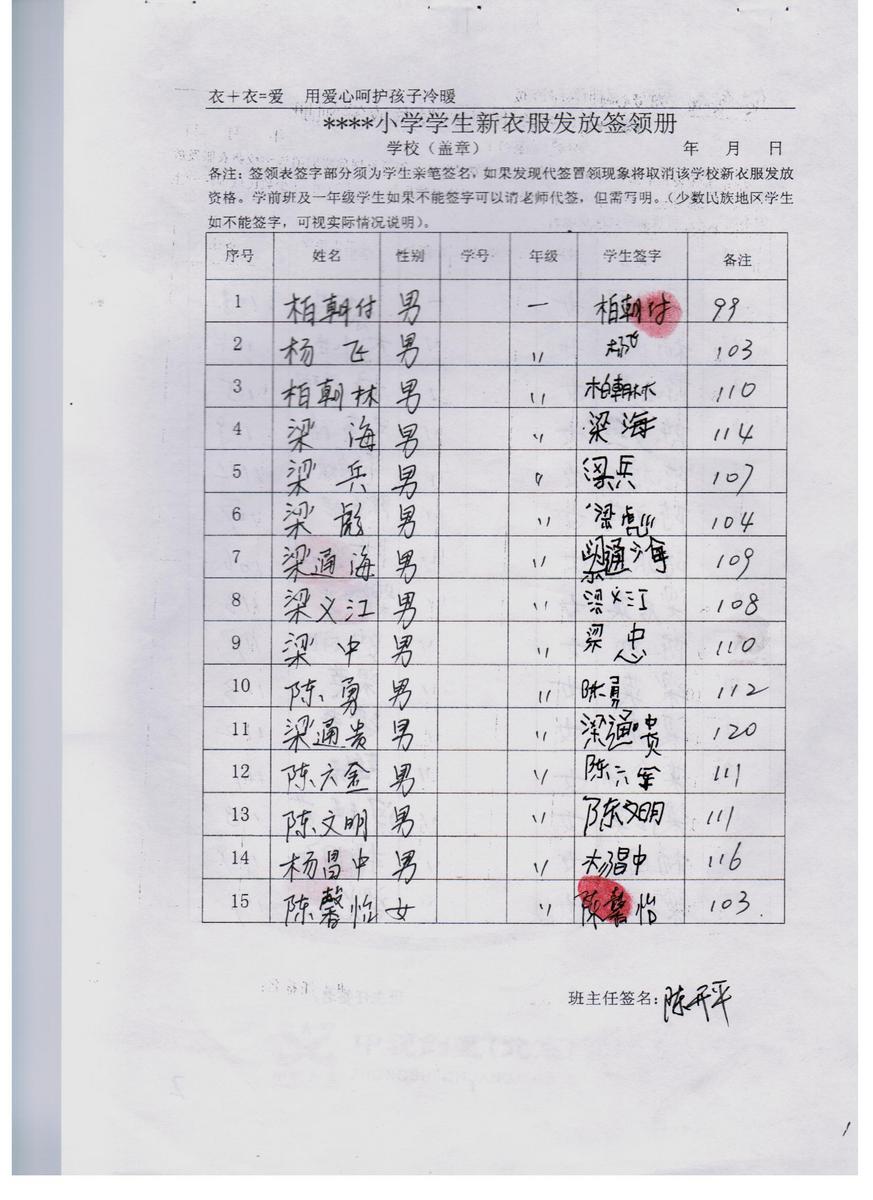 衣＋衣=爱 用爱心呵护孩子冷暖
****小学学生新衣服发放签领册
学校（盖章） 年 月 日
备注：签领表签字部分须为学生亲笔签名，如果发现代签冒领现象将取消该学校新衣服发放
资格。学前班及一年级学生如果不能签字可以请老师代签，但需写明。（少数民族地区学生
如不能签字，可视实际情况说明）。
序号 姓名 性别 学号 年级 学生签字 备注
1 柏朝付 男 一 柏朝付 99
2 杨飞 男 〃 杨飞 103
3 柏朝林 男 〃 柏朝林 110
4 梁海 男 〃 梁海 114
5 梁兵 男 〃 梁兵 107
6 梁彪 男 〃 梁彪 104
7 梁通海 男 〃 梁通海 109
8 梁义江 男 〃 梁义江 108
9 梁中 男 〃 梁忠 110
10 陈勇 男 〃 陈勇 112
11 梁通贵 男 〃 梁通贵 120
12 陈六金 男 〃 陈六金 111
13 陈文明 男 〃 陈文明 111
14 杨昌中 男 〃 杨昌中 116
15 陈馨怡 女 〃 陈馨怡 103
班主任签名：陈开平
1